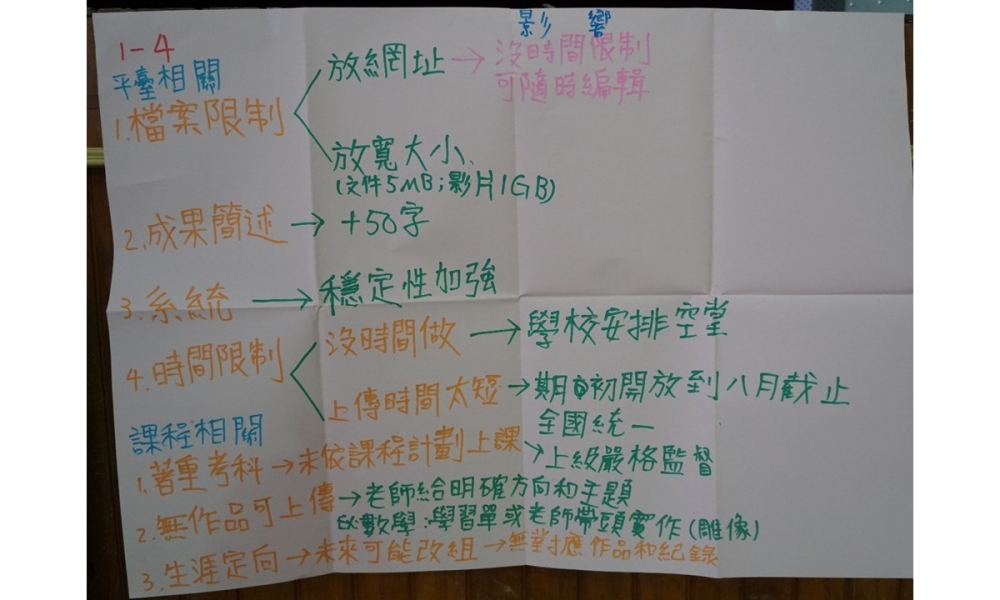 影響
1-4
平臺相關
1.檔案限制
放網址 → 沒時間限制
可隨時編輯
放寬大小
(文件5MB;影片1GB)
2.成果簡述 → +50字
3.系統 → 穩定性加強
4.時間限制
沒時間做 → 學校安排空堂
上傳時間太短 → 期初開放到八月截止
全國統一
課程相關
1.著重考科 → 未依課程計劃上課 → 上級嚴格監督
2.無作品可上傳 → 老師給明確方向和主題
數學:學習單或老師帶頭實作(雕像)
3.生涯定向 → 未來可能改組 → 無對應作品和紀錄